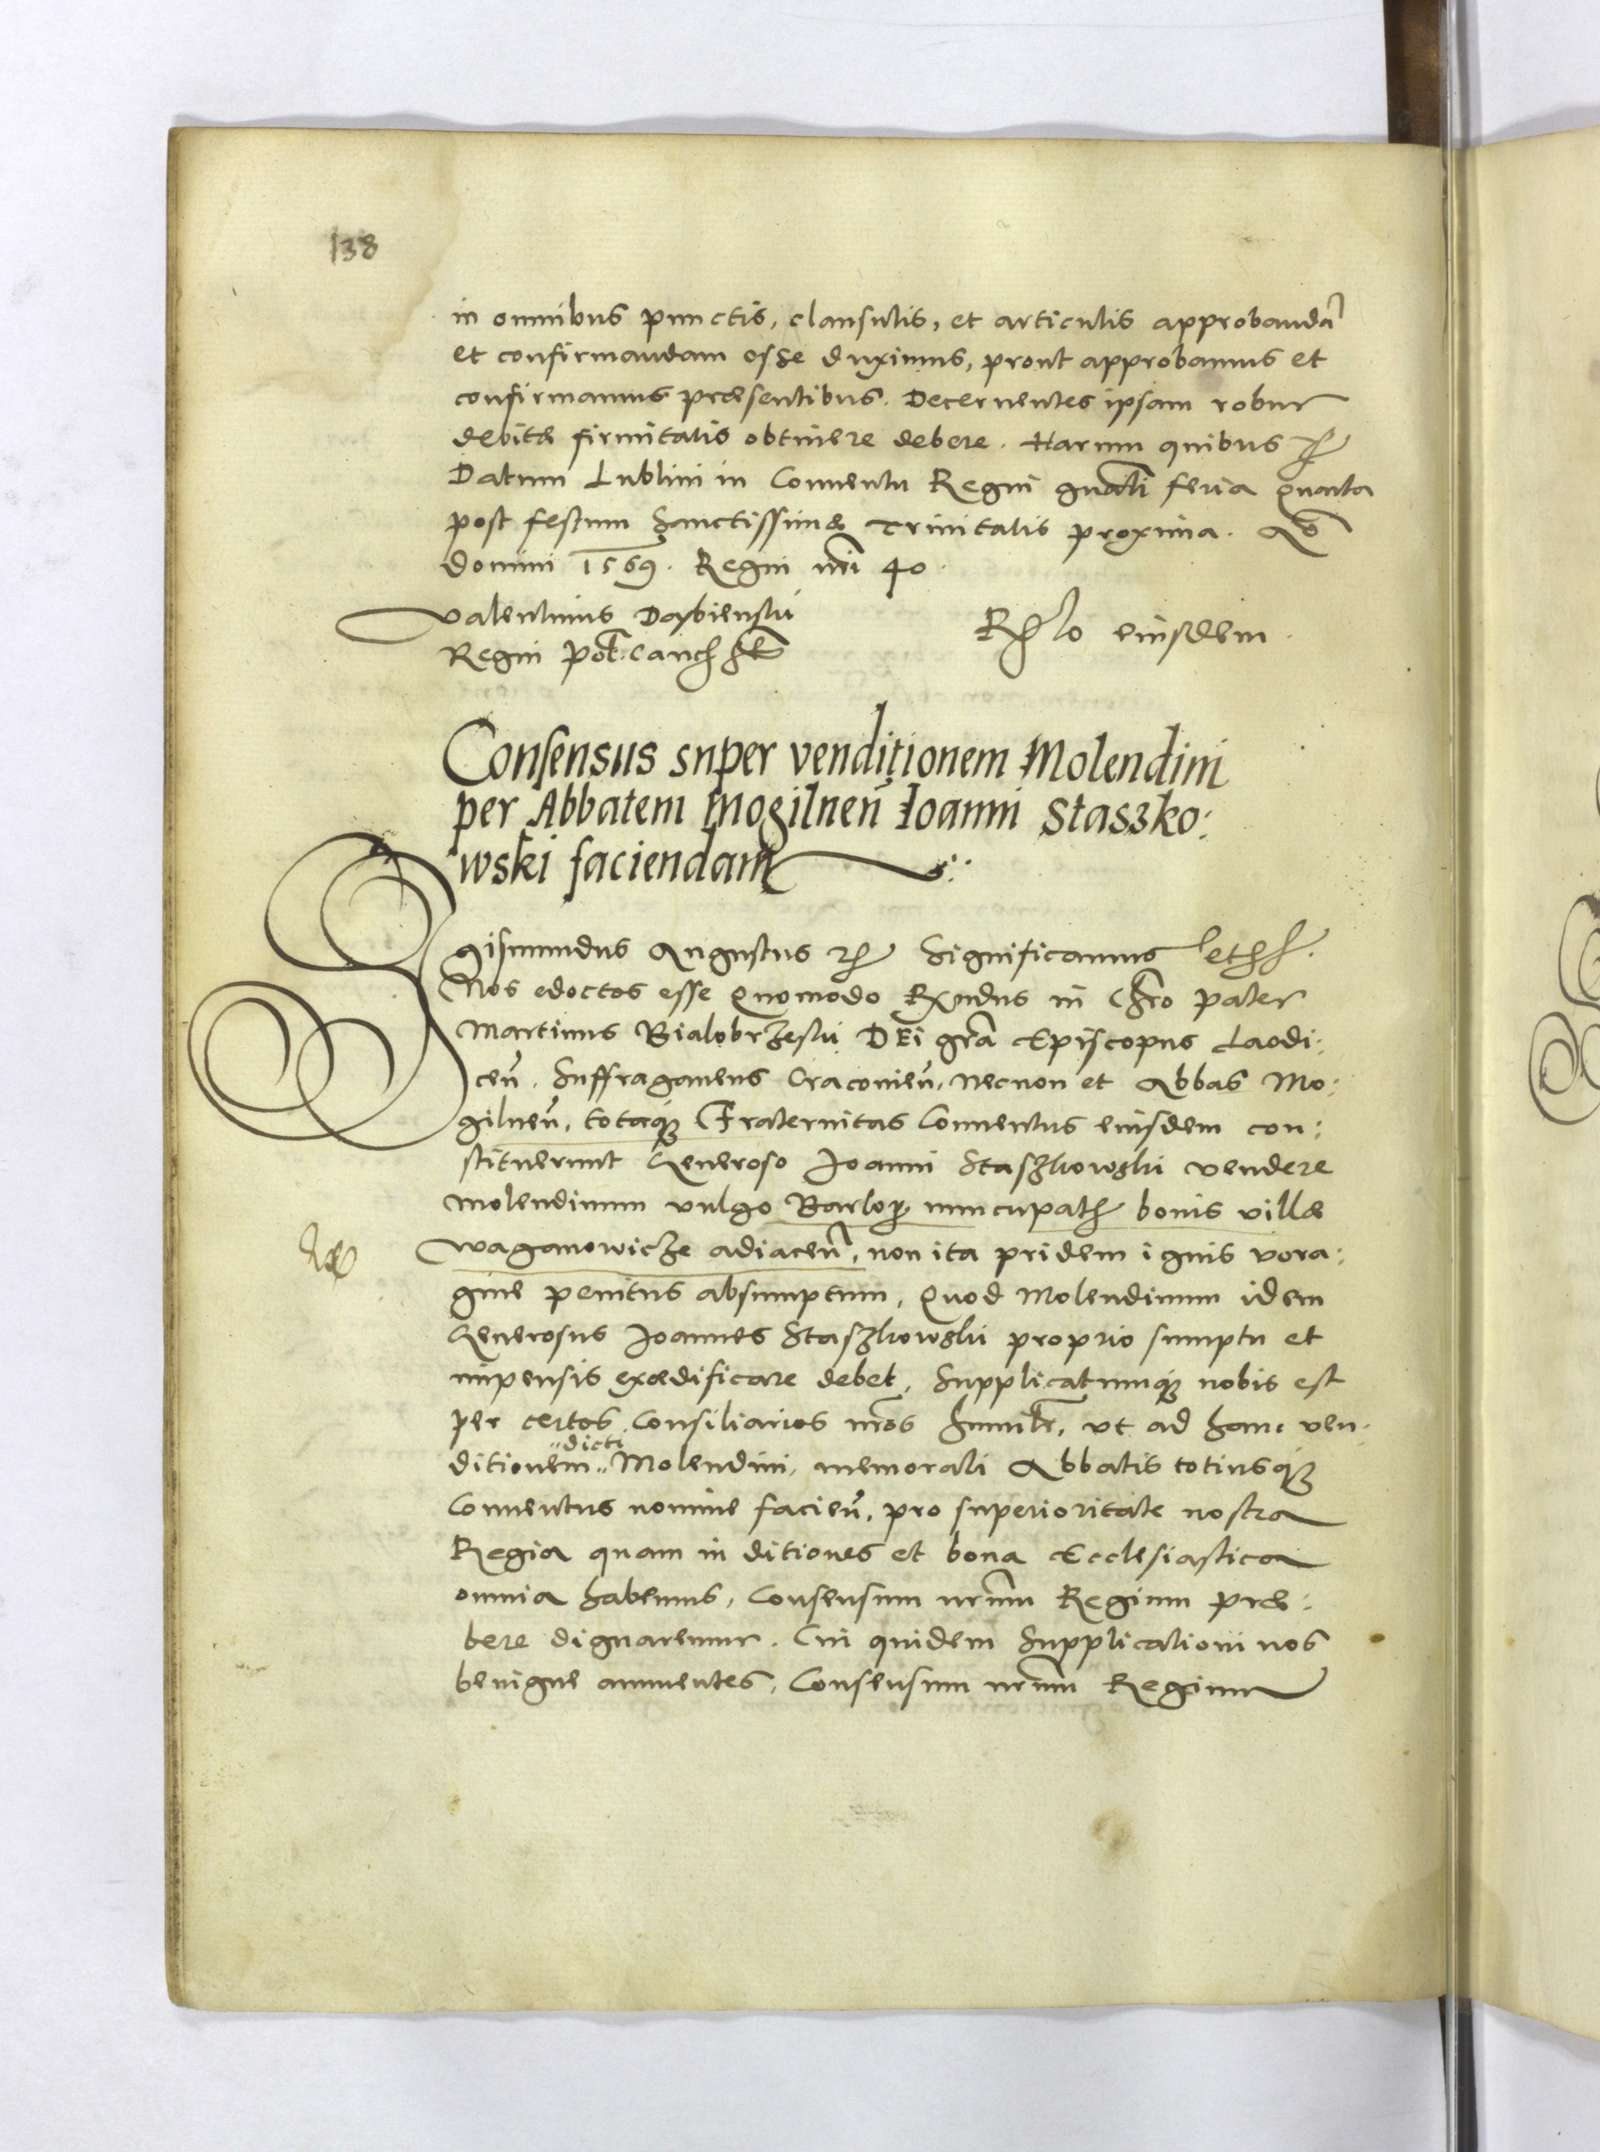 138
in omnibus punctis, clausulis, et articulis approbandā
et confirmandam esse duximus, prout approbamus et
confirmamus præsentibus. Decernentes ipsam robur
debitæ firmitatis obtinere debere. Harum quibus
Datum Lublini in Conventu Regni gnāli feria Quarta
post festum Sanctissimæ Trinitatis proxima. Aō
domini 1569. Regni nrī 40.
Valentinus Dąbienski
Regni Pol. Canc.
Rełlo eiusdem.
Consensus super venditionem Molendini
per Abbatem Mogilneñ Ioanni Staszko:
wski faciendam
Sigismundus Augustus Significamus
Nos edoctos esse Quomodo Rñdus in Chro Pater
Martinus Bialobrzeski DEi gra Episcopus Laodi:
ceñ. Suffraganeus Cracovieñ, necnon et Abbas Mo:
gilneñ, totaq₃ Fraternitas Conventus eiusdem con:
stituerunt Generoso Joanni Staszkowski vendere
molendinum vulgo nuncupat. bonis villæ
Waganowicze adiaceñ, non ita pridem ignis vora:
gine penitus absumptum, Quod Molendinum idem
Generosus Joannes Staszkowski proprio sumptu et
impensis exædificare debet, Supplicatumq₃ nobis est
per certos Consiliarios nros humilr, ut ad hanc ven:
ditionem "dicti" Molendini, memorati Abbatis totiusq₃
Conventus nomine facieñ, pro superioritate nostra
Regia quam in ditiones et bona Ecclesiastica
omnia habemus, Consensum nrum Regium præ:
bere dignaremur. Cui quidem Supplicationi nos
benigne annuentes, Consensum nrum Regium